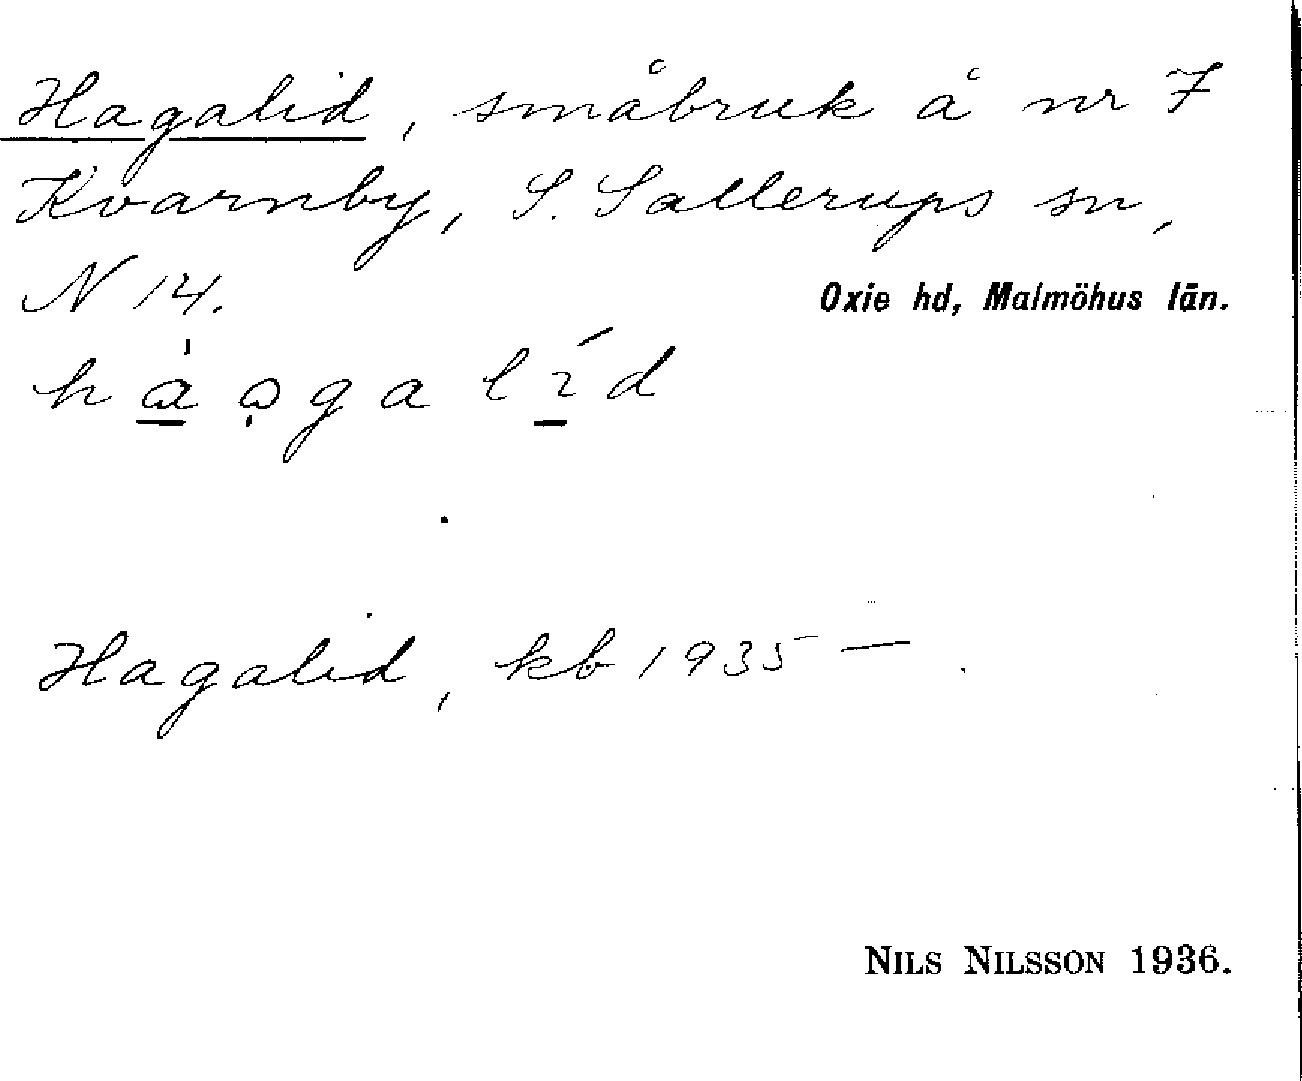 Hagalid, småbruk å nr 7
Kvarnby, S. Sallerups sn,
N 14.
Oxie hd, Malmöhus län.
Hagalid, kb 1935 — .
NILS NILSSON 1936.